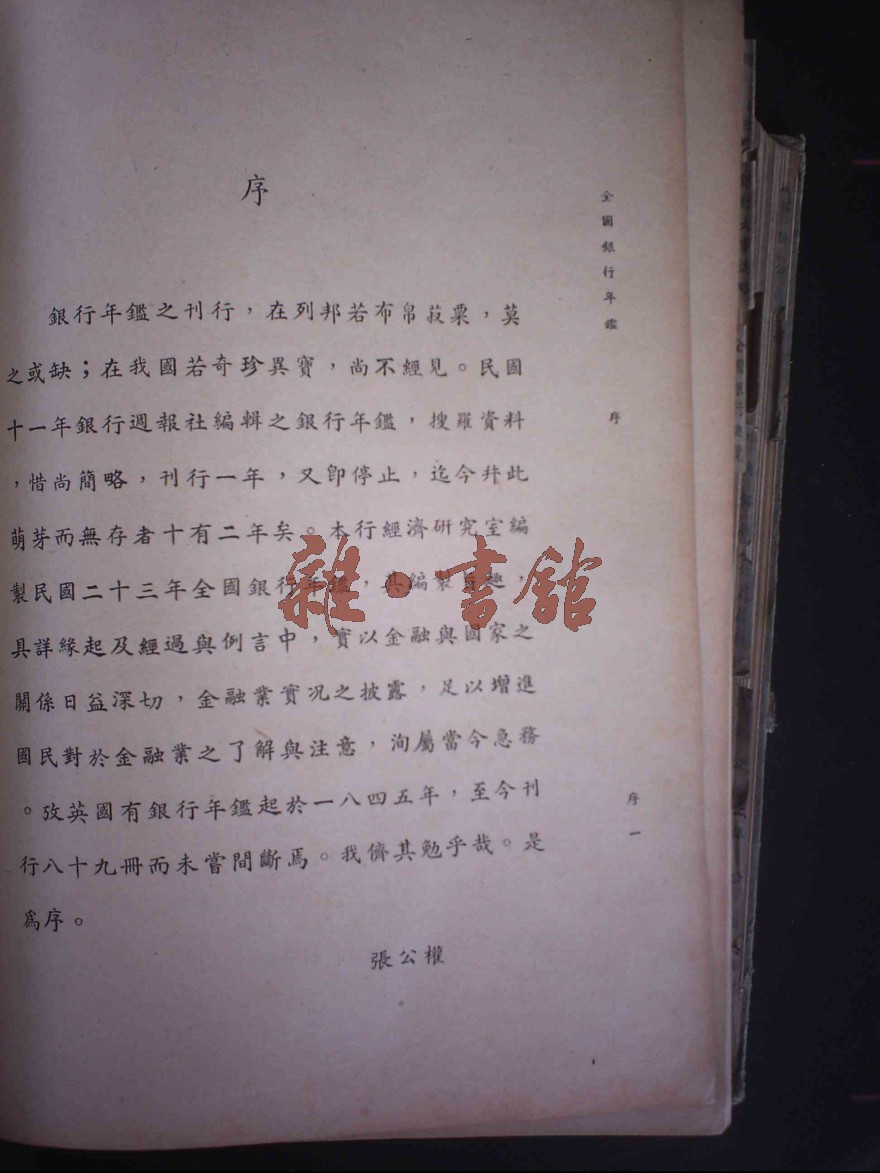 序
銀行年鑑之刊行，在列邦若布帛菽粟，莫
之或缺；在我國若奇珍異寶，尚不經見。民國
十一年銀行週報社編輯之銀行年鑑，搜羅資料
，惜尚簡略，刊行一年，又卽停止，迄今幷此
萌芽而無存者十有二年矣。本行經濟研究室編
製民國二十三年全國銀行年鑑，其編製旨趣，
具詳緣起及經過與例言中，實以金融與國家之
關係日益深切，金融業實况之披露，足以增進
國民對於金融業之了解與注意，洵屬當今急務
。攷英國有銀行年鑑起於一八四五年，至今刊
行八十九冊而未嘗間斷焉。我儕其勉乎哉。是
爲序。
張公權
全國銀行年鑑
序
序一
雜·書館